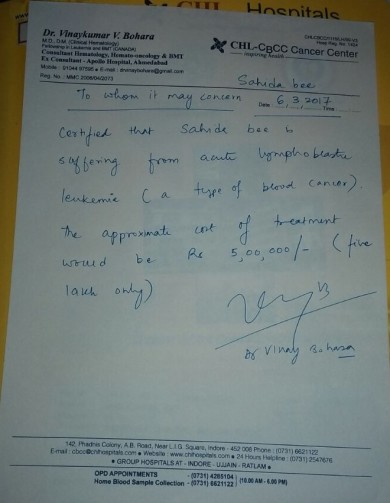 CHL Hospitals
Dr. Vinaykumar V. Bohara
M.D., D.M. (Clinical Hematology)
Fellowship in Leukemia and BMT (CANADA)
Consultant Hematology, Hemato-oncology & BMT
Ex Consultant - Apollo Hospital, Ahmedabad
Reg. No. : MMC 2006/04/2073
CHL-CBCC Cancer Center
Sahida bee
To whom it may concern
Date 6,3,2017 Time
Certified that Sahide bee is
suffering from acute lymphoblastic
leukemia (a type of blood cancer).
The approximate cost of treatment
would be Rs 5,00,000/- (five
lakh only)
Dr Vinay Bohara
142, Phadnis Colony, A.B. Road, Near L.I.G. Square, Indore - 452 008 Phone : (0731) 6621122
E-mail : cbcc@chlhospitals.com • Website : www.chlhospitals.com • 24 Hours Helpline : (0731) 2547676
• GROUP HOSPITALS AT - INDORE - UJJAIN - RATLAM •
OPD APPOINTMENTS - (0731) 4285104
Home Blood Sample Collection - (0731) 6621122 (10.00 AM - 6.00 PM)